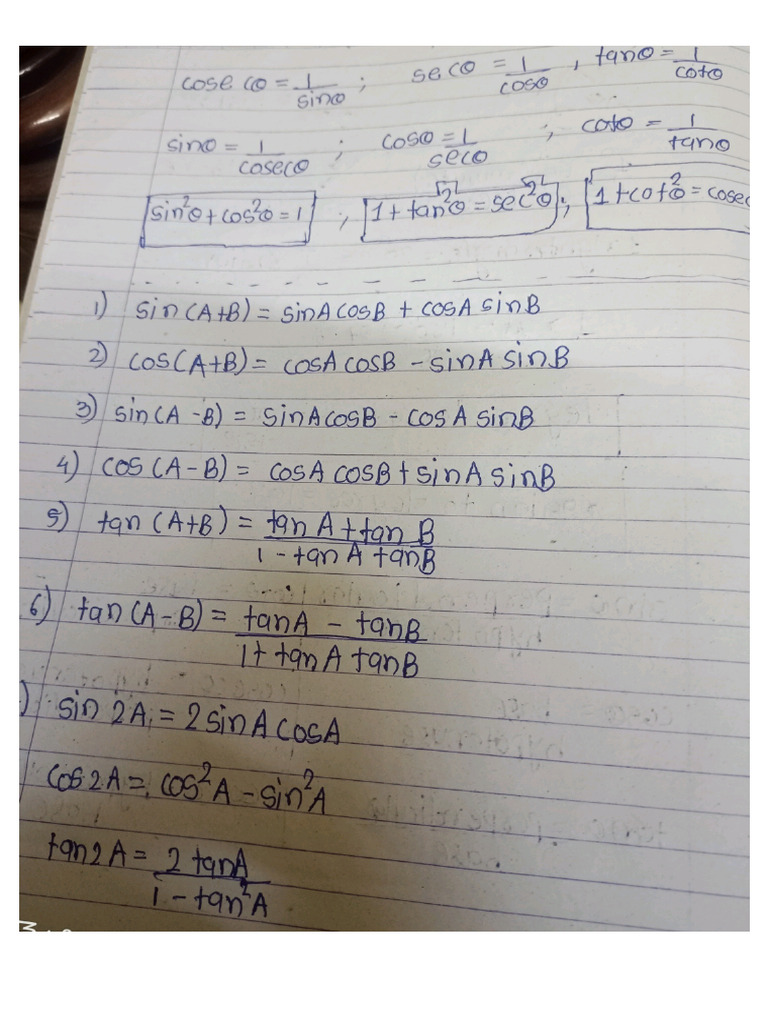 cosecθ = 1/sinθ ; secθ = 1/cosθ , tanθ = 1/cotθ
sinθ = 1/cosecθ ; cosθ = 1/secθ ; cotθ = 1/tanθ
sin²θ + cos²θ = 1 , 1 + tan²θ = sec²θ ; 1 + cot²θ = cosec
1) sin(A+B) = sinA cosB + cosA sinB
2) cos(A+B) = cosA cosB - sinA sinB
3) sin(A-B) = sinA cosB - cosA sinB
4) cos(A-B) = cosA cosB + sinA sinB
5) tan(A+B) = tanA + tanB / 1 - tanA tanB
6) tan(A-B) = tanA - tanB / 1 + tanA tanB
) sin 2A = 2 sinA cosA
cos2A = cos²A - sin²A
tan2A = 2 tanA / 1 - tan²A